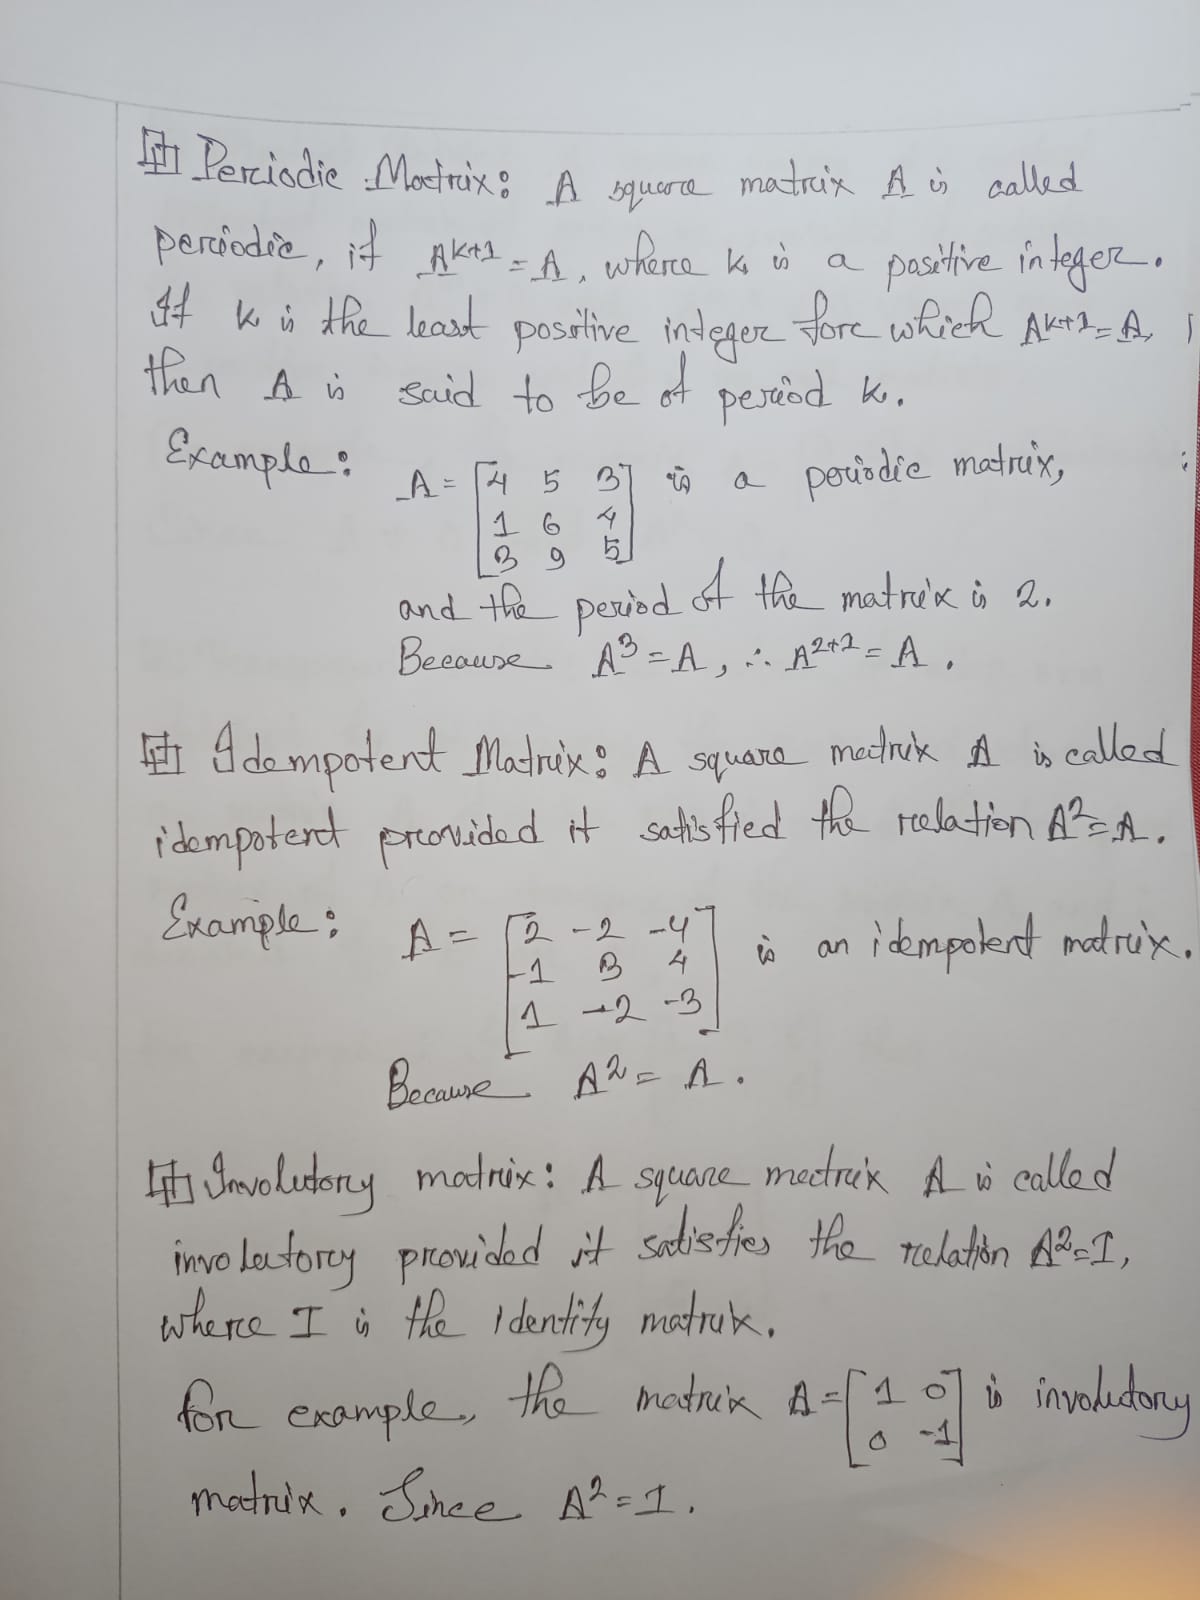 Periodic Matrix: A square matrix A is called
periodic, if A^{k+1} = A, where k is a positive integer.
If k is the least positive integer for which A^{k+1} = A,
then A is said to be of period k.
Example: A = [4 5 3] is a periodic matrix,
1 6 4
3 9 5
and the period of the matrix is 2.
Because A^3 = A, ∴ A^{2+1} = A.
Idempotent Matrix: A square matrix A is called
idempotent provided it satisfied the relation A^2 = A.
Example: A = [2 -2 -4] is an idempotent matrix.
-1 3 4
1 -2 -3
Because A^2 = A.
Involutory matrix: A square matrix A is called
involutory provided it satisfies the relation A^2 = I,
where I is the identity matrix.
for example, the matrix A = [1 0] is involutory
0 -1
matrix. Since A^2 = I.